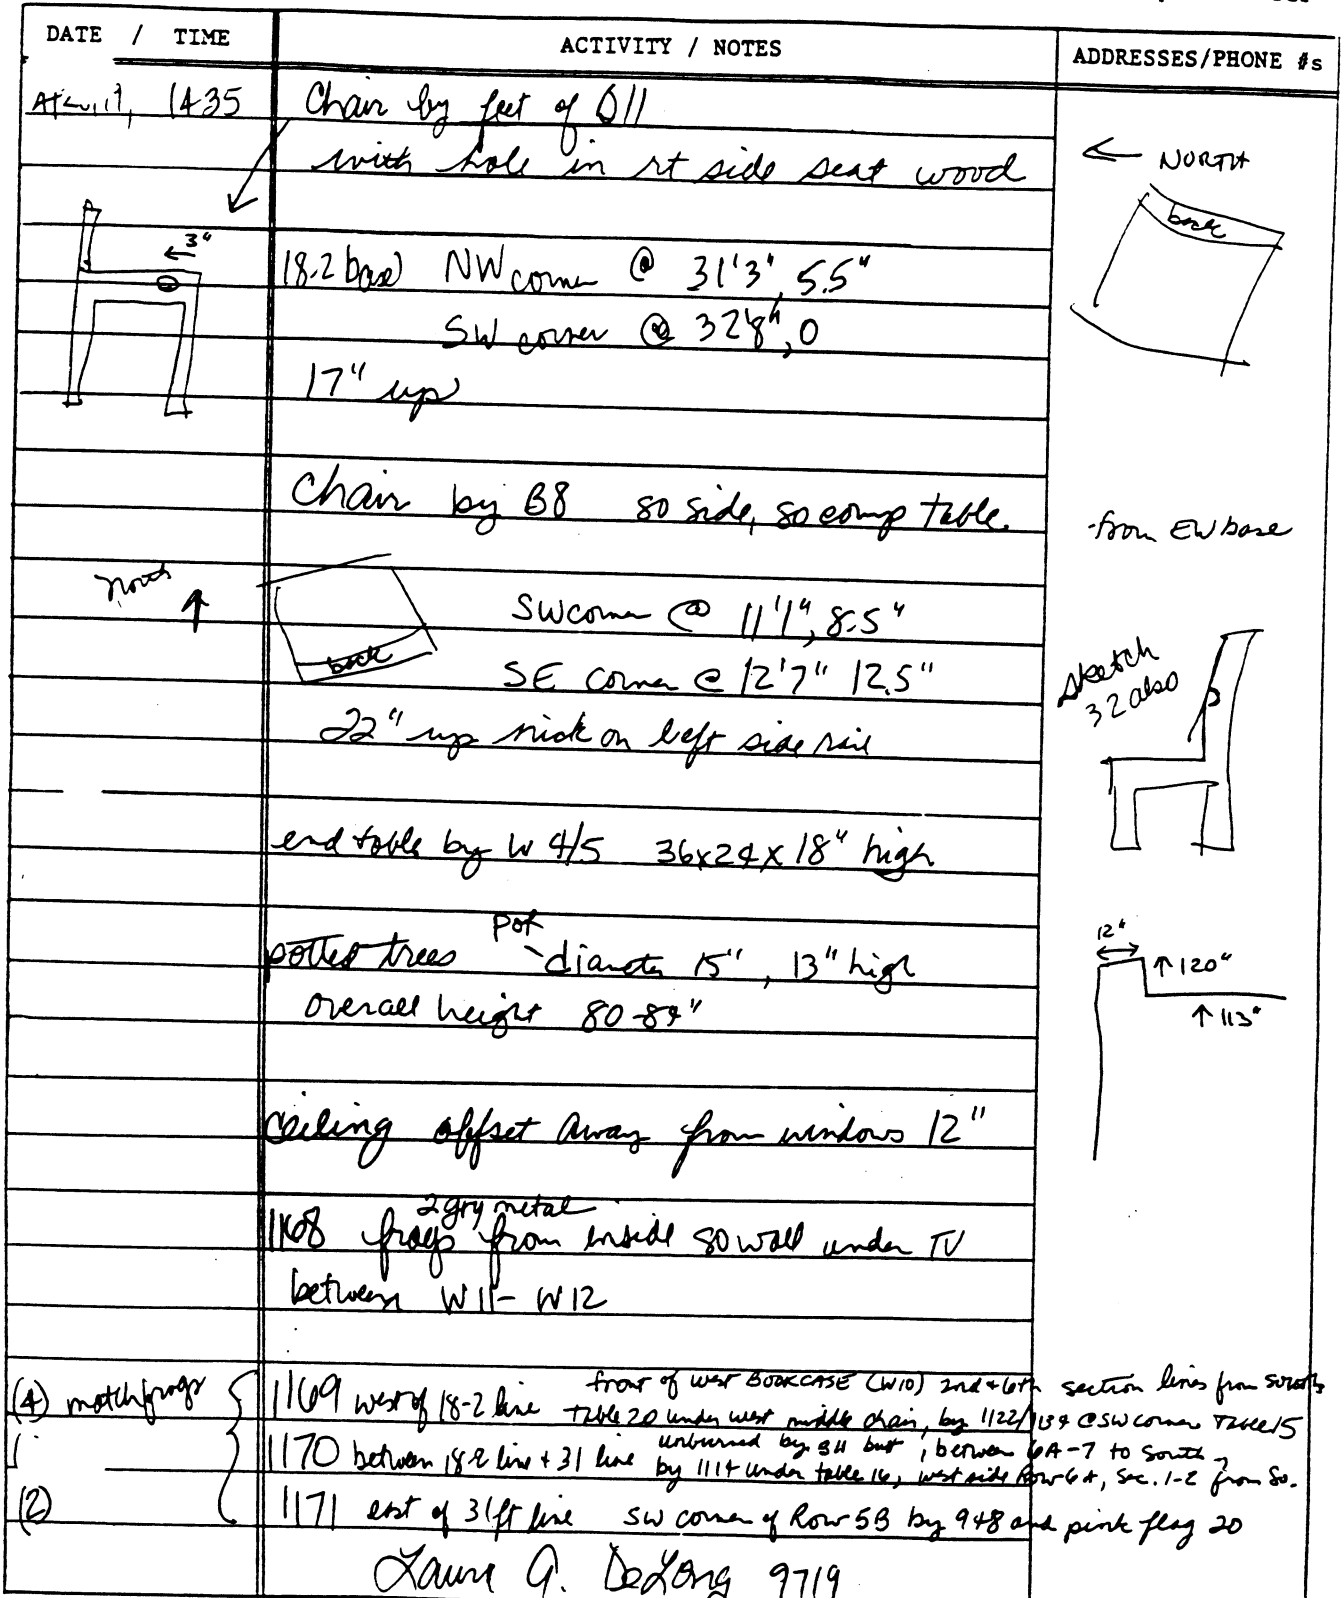 DATE / TIME
ACTIVITY / NOTES
ADDRESSES/PHONE #s
1435 Chair by feet of D11
with hole in rt side seat wood
← NORTH
back
3"
18.2 base) NW corner @ 31'3", 5.5"
SW corner @ 32'8", 0
17" up
Chair by B8 so side, so comp table.
-from EW base
north
back
SW corner @ 11'1", 8.5"
SE corner @ 12'7" 12.5"
sketch
32 also
22" up nick on left side rail
end table by W 4/5 36x24x18" high
pot
potted trees diameter 15", 13" high
overall height 80-84"
12"
↑120"
↑113"
ceiling offset away from windows 12"
2 gry metal
1168 frags from inside so wall under TV
between W11- W12
(4) match frags
1169 west of 18-2 line front of west BOOKCASE (W10) 2nd + 6th section lines from south
Table 20 under west middle chair, by 1122/1134 @ SW corner Table 15
1170 between 18-2 line + 31 line unburned by but, between 6A-7 to south,
by 1114 under table 16, west side Row 6A, Sec. 1-2 from So.
(2)
1171 east of 31ft line SW corner of Row 5B by 948 and pink flag 20
Laura G. DeLong 9719